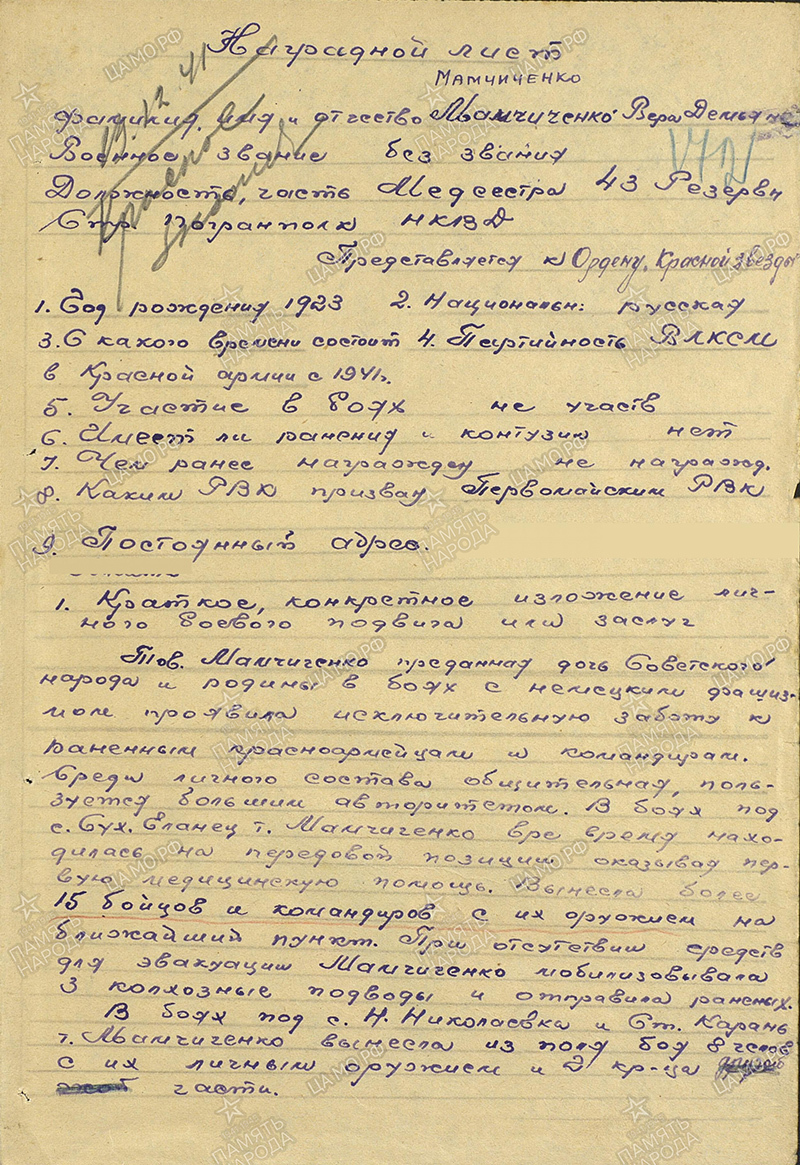 Наградной лист
Мамчиченко
Фамилия, имя и отчество Мамчиченко Вера
Военное звание без звания
Должность, часть Медсестра 43 Резервн
Стр. Погранполк НКВД
Представляется к Ордену „Красной звезды
1. Год рождения 1923 2. Национальн: русская
3. С какого времени состоит 4. Партийность ВЛКСМ
в Красной армии с 1941г.
5. Участие в боях не участв
6. Имеет ли ранения и контузии нет
7. Чем ранее награжден не награжд.
8. Каким РВК призван Первомайским РВК
9. Постоянный адрес.
1. Краткое, конкретное изложение лич-
ного боевого подвига или заслуг
Тов. Мамчиченко преданная дочь Советского
народа и родины в боях с немецким фашиз-
мом проявила исключительную заботу к
раненным красноармейцам и командирам.
Среди личного состава общительная, поль-
зуется большим авторитетом. В боях под
с. Сух. Еланец т. Мамчиченко все время нахо-
дилась на передовой позиции оказывая пер-
вую медицинскую помощь. Вынесла более
15 бойцов и командиров с их оружием на
ближайший пункт. При отсутствии средств
для эвакуации Мамчиченко мобилизовывала
3 колхозные подводы и отправила раненых.
В боях под с. Н. Николаевка и Ст. Карань
т. Мамчиченко вынесла из поля боя 8 челов
с их личным оружием и 2 кр-ца
части.
ПАМЯТЬ НАРОДА
ЦАМО.РФ